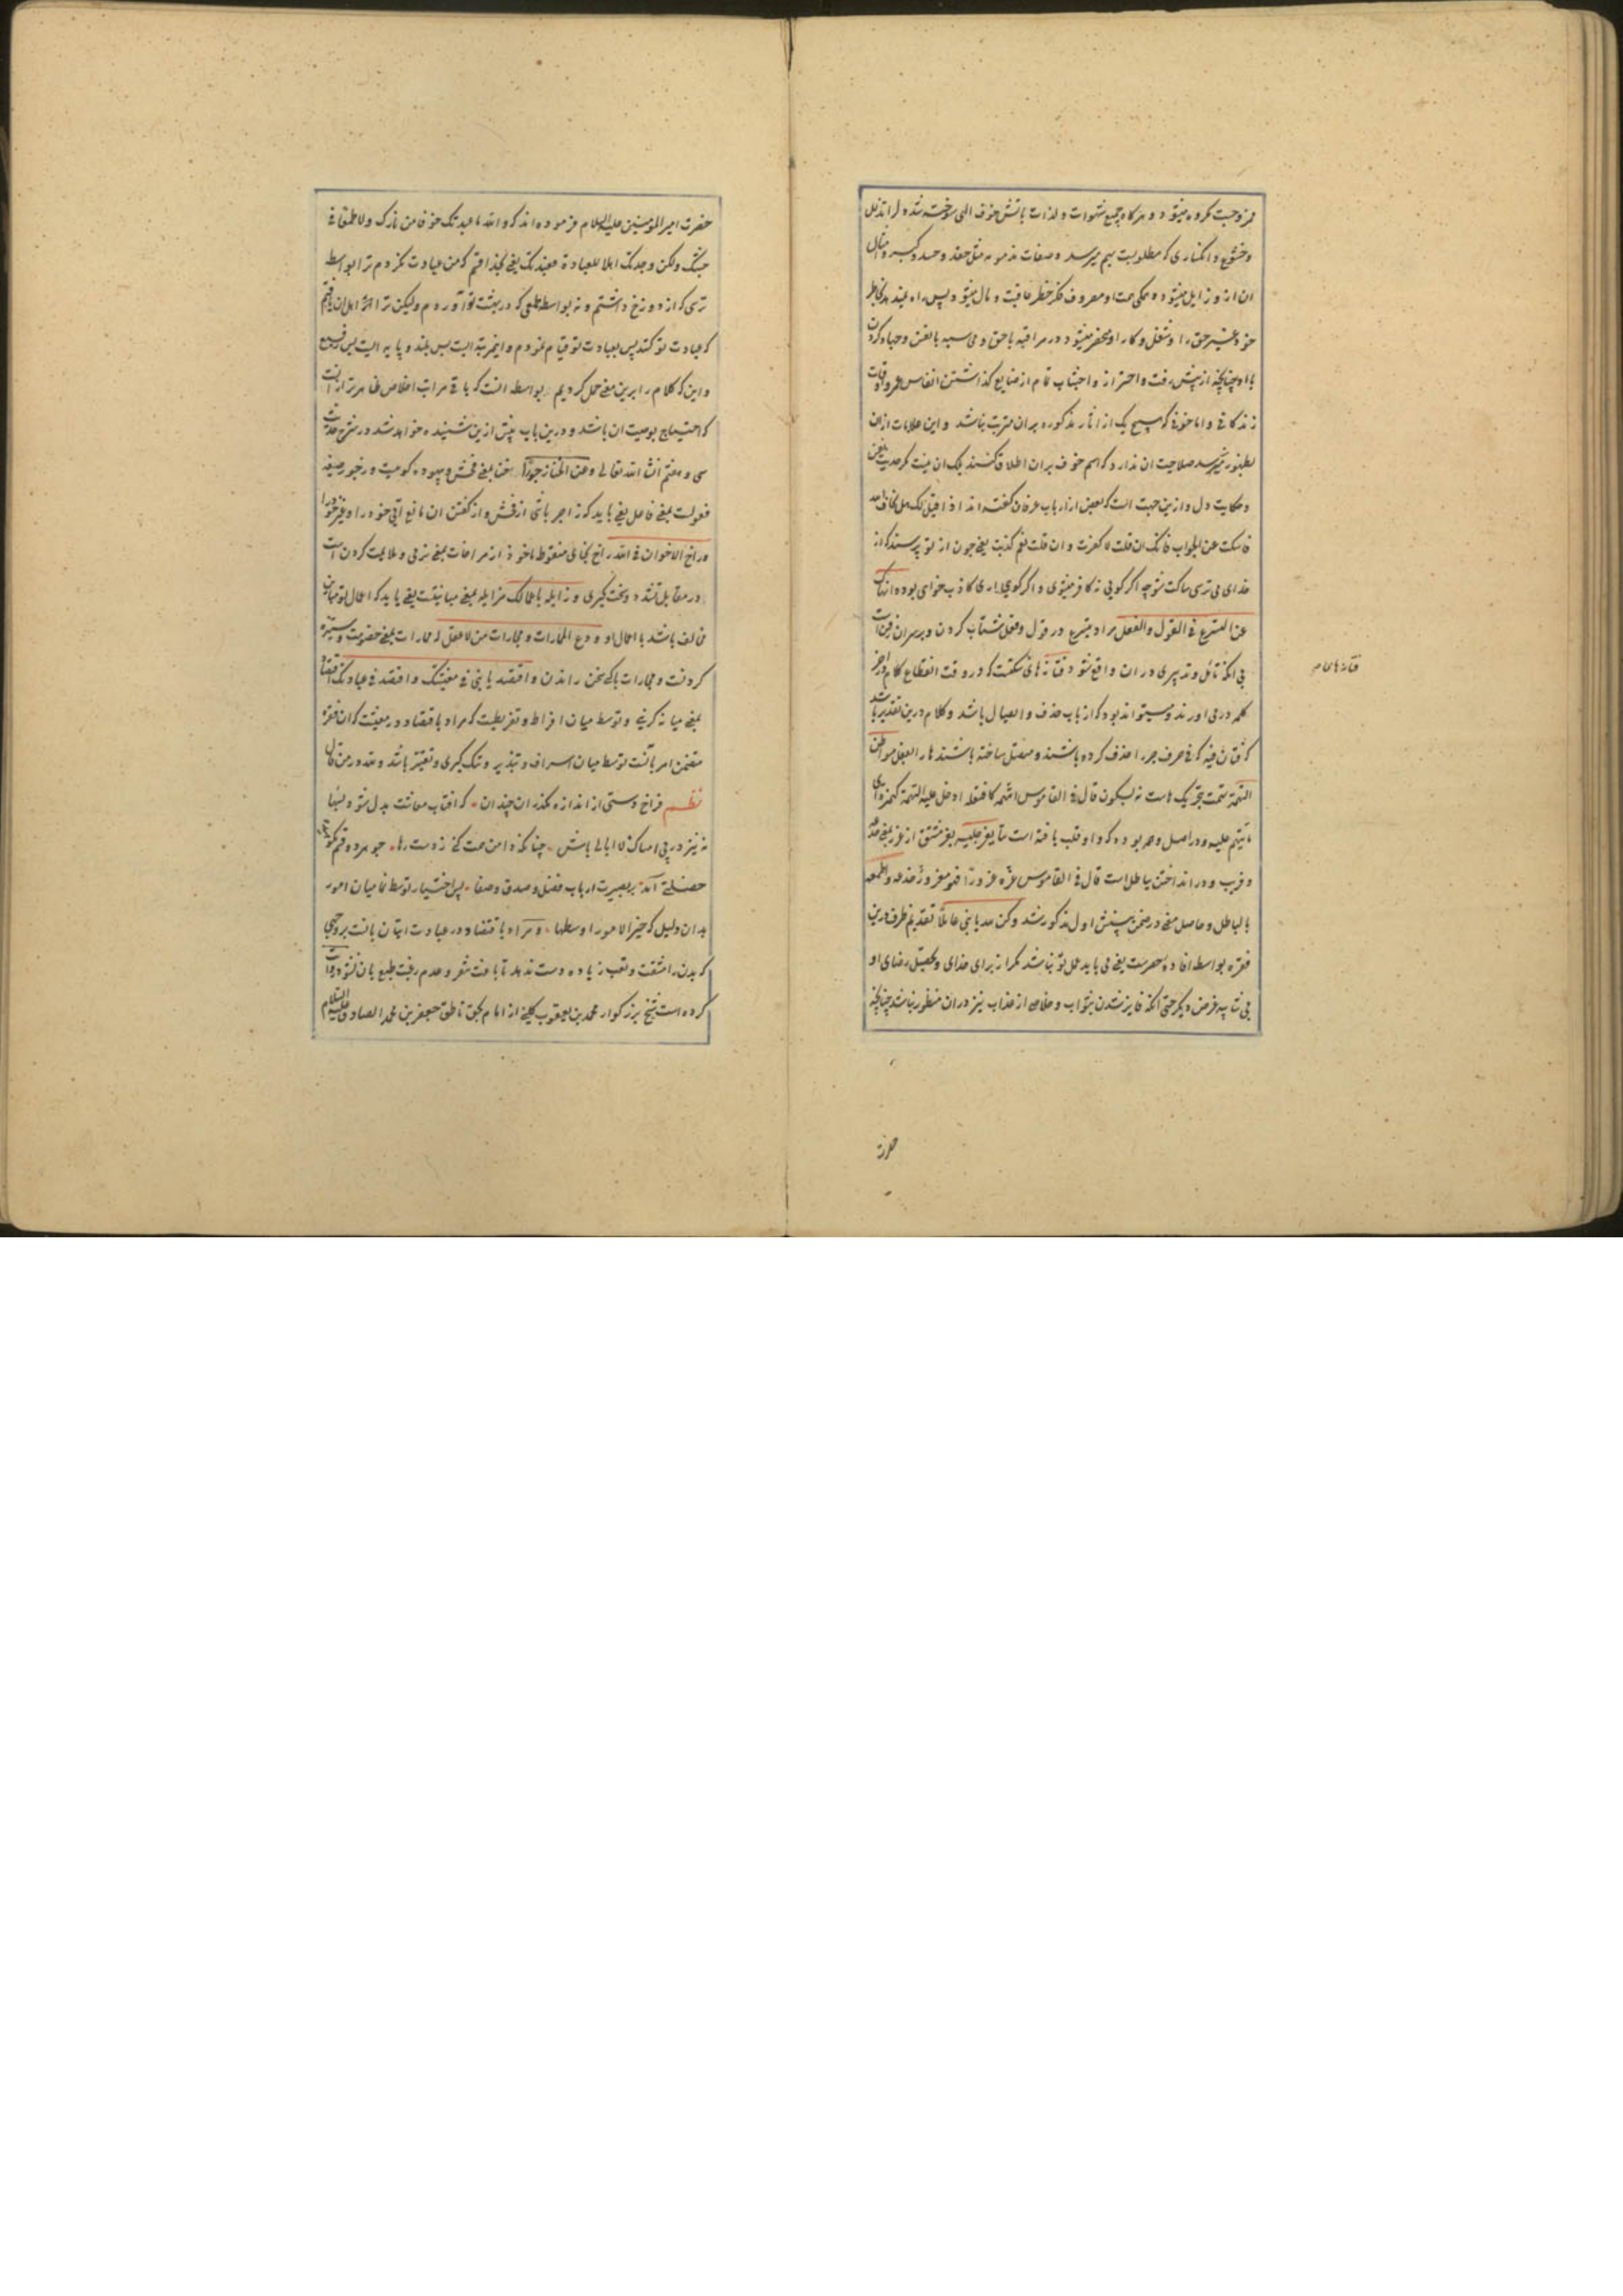 وخشوع و انکساری که مطلوبست بهم میرسد و صفات مذمومه مثل حقد و حسد و کبر و امثال
ان ازو زایل میشود و همگی همت او مصروف فکر خطر عاقبت و مال میشود و پس راه نمیدهد بخاطر
خود غیر حق را و شغل و کار او منحصر میشود در مراقبه با حق و محاسبه با نفس و جهاد کردن
با او چنانچه از پیش رفت و احتراز و اجتناب تمام از ضایع گذاشتن انفاس عمر و اوقات
زندگانی و اما خوفی که هیچ یک از اثار مذکوره بران مترتب نباشد و این علامات ازان
بظهور نمیرسد صلاحیت ان ندارد که اسم خوف بران اطلاق کنند بلکه ان نیست مگر حدیث نفس
و حکایت دل و ازین جهت است که بعضی از ارباب عرفان گفته اند اذا قیل لک هل تخاف الله
فاسکت عن الجواب فانک ان قلت لا کفرت و ان قلت نعم کذبت یعنی چون از تو پرسند که از
خدای می ترسی ساکت شو چه اگر گویی نه کافر میشوی و اگر گویی اری کاذب خواهی بود و انهاک
عن التسرع فی القول والفعل مراد بتسرع در قول و فعل شتاب کردن و بر سر ان رفتن است
بی انکه تامل و تدبیری در ان واقع شود
فتانه ها
کلمه در می اورند و میتواند بود که از باب حذف و ایصال باشد و کلام درین تقدیر باشد
که فتان فیه که فی حرف جر را حذف کرده باشند و متصل ساخته باشند ها را بفعل مواطن
التهمة تهمت بتحریک هاست نه بسکون قال فی القاموس اتهمه کافتعله ادخل علیه التهمة کهمزة ای
ما یتهم علیه و در اصل وهم بوده که واو قلب یافته است بتا یغر جلیسه یغر مشتق از غر بمعنی خدعه
و فریب و در انداختن بباطل است قال فی القاموس غره غرورا فهو مغرور خدعه و اطمعه
بالباطل و حاصل معنی در ضمن پیشش اول مذکور شد وکن لله یا بنی عاملا تقدیم ظرف درین
فقره بواسطه افاده حصرست یعنی می باید عمل تو نباشد مگر از برای خدای و تحصیل رضای او
بی شایبه غرض دیگر حتی انکه فایز شدن بثواب و خلاص از عذاب نیز دران منظور نباشد چنانچه
حضرت
حضرت امیر المؤمنین علیه السلام فرموده اند که والله ما عبدتک خوفا من نارک ولا طمعا فی
جنتک ولکن وجدتک اهلا للعبادة فعبدتک یعنی بخدا قسم که من عبادت نکردم ترا بواسطه
ترسی که از دوزخ داشتم و نه بواسطه طمعی که در بهشت تو اوردم ولیکن ترا اهل ان یافتم
که عبادت تو کنند پس بعبادت تو قیام نمودم و این مرتبه ایست بس بلند و پایه ایست بس رفیع
و این که کلام را برین معنی حمل کردیم بواسطه انست که باقی مراتب اخلاص ظاهرتر از انست
که احتیاج بوصیت ان باشد و درین باب پیش ازین شنیده خواهد شد در شرح حدیث
سی و هفتم انشاء الله تعالی وعن الخنا زجورا خنا بمعنی فحش و بیهوده گوییست و زجور صیغه
فعولست بمعنی فاعل یعنی باید که زاجر باشی از فحش و از گفتن ان مانع ایی خود را و غیر خود را
وراخ الاخوان فی الله راخ بخای منقوطه ماخوذ از مراخات بمعنی نرمی و ملایمت کردن است
در مقابل تشدد و سخت گیری و زایله باعمالک مزایله بمعنی مباینتست یعنی باید که اعمال تو مباین و
مخالف باشد با اعمال او ودع الممارات و مجارات من لا عقل له ممارات بمعنی خصومت و ستیزه
کردنست و مجارات با کسی سخن راندن واقتصد یا بنی فی معیشتک واقتصد فی عبادتک اقتصاد
بمعنی میانه گزینی و توسط میان افراط و تفریطست که مراد باقتصاد در معیشت که ان فقره
متضمن امر بانست توسط میان اسراف و تبذیر و تنگ گیری و تقتیر باشد و لله در من قال
نظم فراخ دستی از اندازه مگذران چندان که افتاب معاشت بدل شود بسها
نه نیز در پی امساک لاابالی باش چنانکه دامن همت کنی ز دست رها چو هر دو قسم نکوهیده
خصلتی آمد بر بصیرت ارباب فضل و صدق و صفا پس اختیار توسط نما میان امور
بدان دلیل که خیر الامور اوسطها و مراد باقتصاد در عبادت اتیان بانست بروجهی
که بدن را مشقت و تعب زیاده دست ندهد تا باعث نفر و عدم رغبت طبع بان نشود روایت
کرده است شیخ بزرگوار محمد بن یعقوب کلینی از امام بحق ناطق جعفر بن محمد الصادق علیه السلام